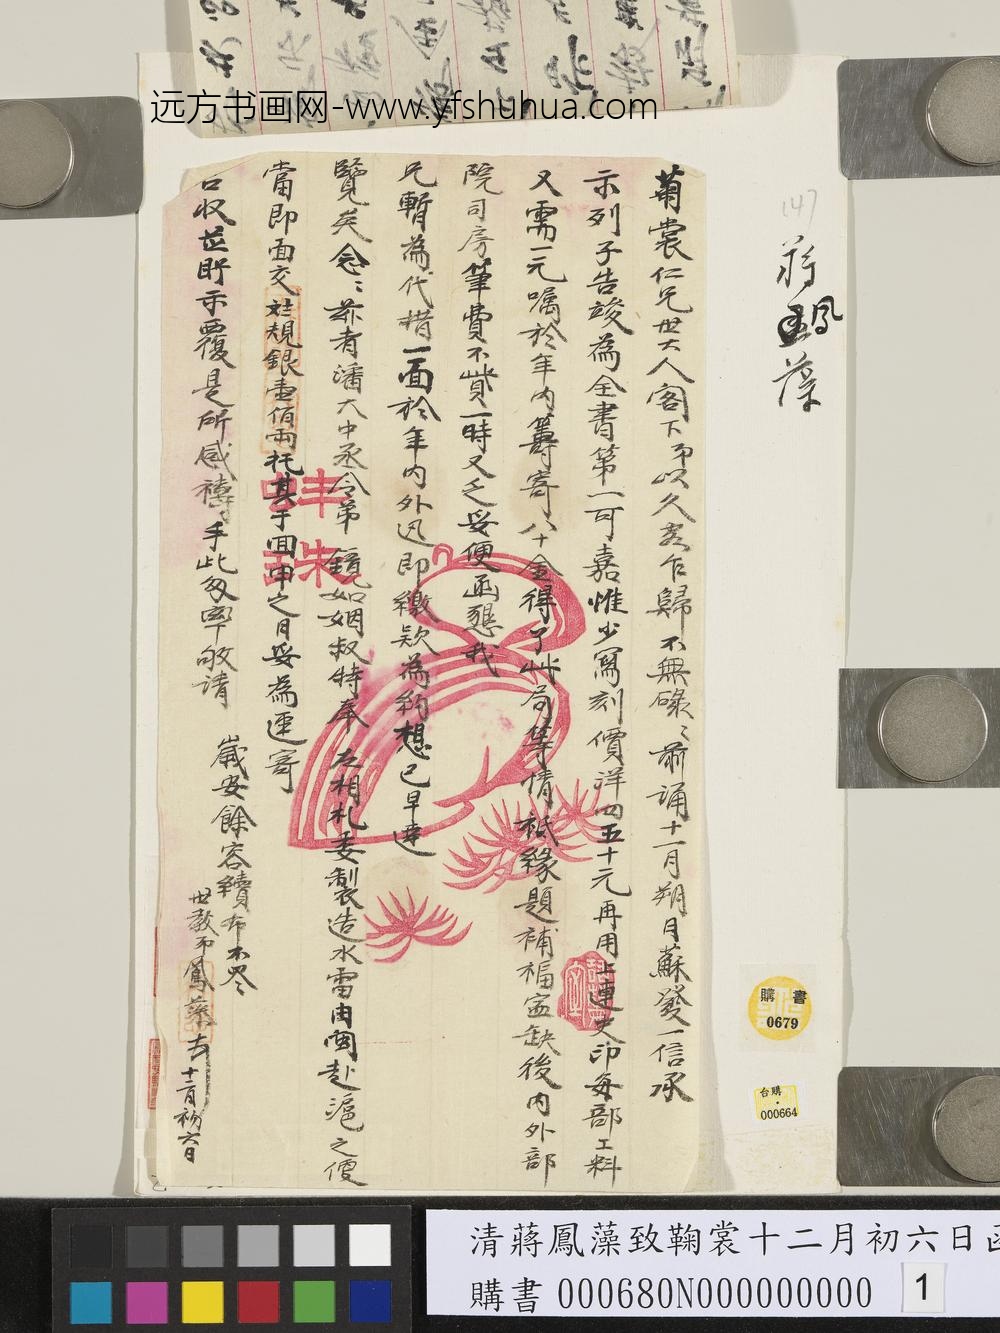 远方书画网-www.yfshuhua.com
菊裳仁兄世大人閣下弟以久客乍歸不無碌〻前誦十一月朔日蘇發一信承
示列子告竣為全書第一可嘉惟少寫刻價洋四五十元再用上連史印每部工料
又需一元囑於年内籌寄八十金得了此局等情祇緣題補福寧缺後内外部
院司房筆費不貲一時又乏妥便函懇我
兄暫為代措一面於年内外迅即繳欵為約想已早達
覽矣念〻茲者潘大中丞令弟鏡如姻叔特奉左相札委製造水雷由閩赴滬之便
當即面交規銀壹佰兩托其于回申之日妥為速寄
台收並盼示覆是所感禱手此匆率敬請
歲安餘容續布不尽
世教弟鳳藻頓十二月初六日
蚌丰
珠
147
蔣鳳藻
購書
0679
台購
000664
清蔣鳳藻致鞠裳十二月初六日函
購書000680N000000000
1